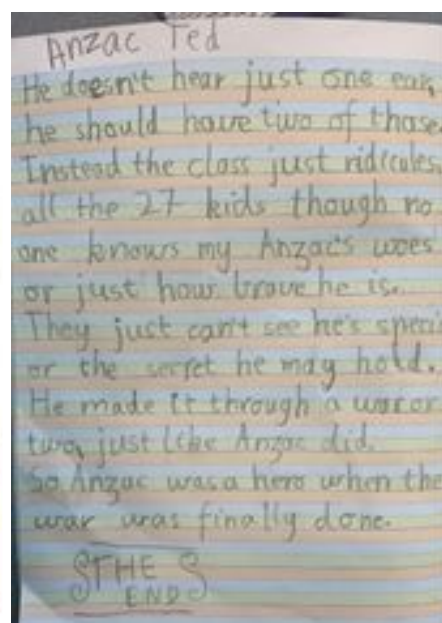 Anzac Ted
He doesn't hear just one ear,
he should have two of those
Instead the class just ridicules,
all the 27 kids though no
one knows my Anzac's woes
or just how brave he is.
They just can't see he's speci
or the secret he may hold.
He made it through a war or
two, just like Anzac did.
So Anzac was a hero when the
war was finally done.
THE
END